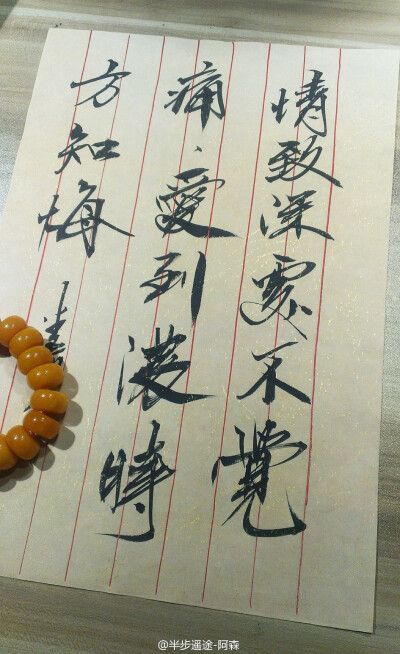 情致深處不覺
痛、愛到濃時
方知悔
@半步遥途-阿森